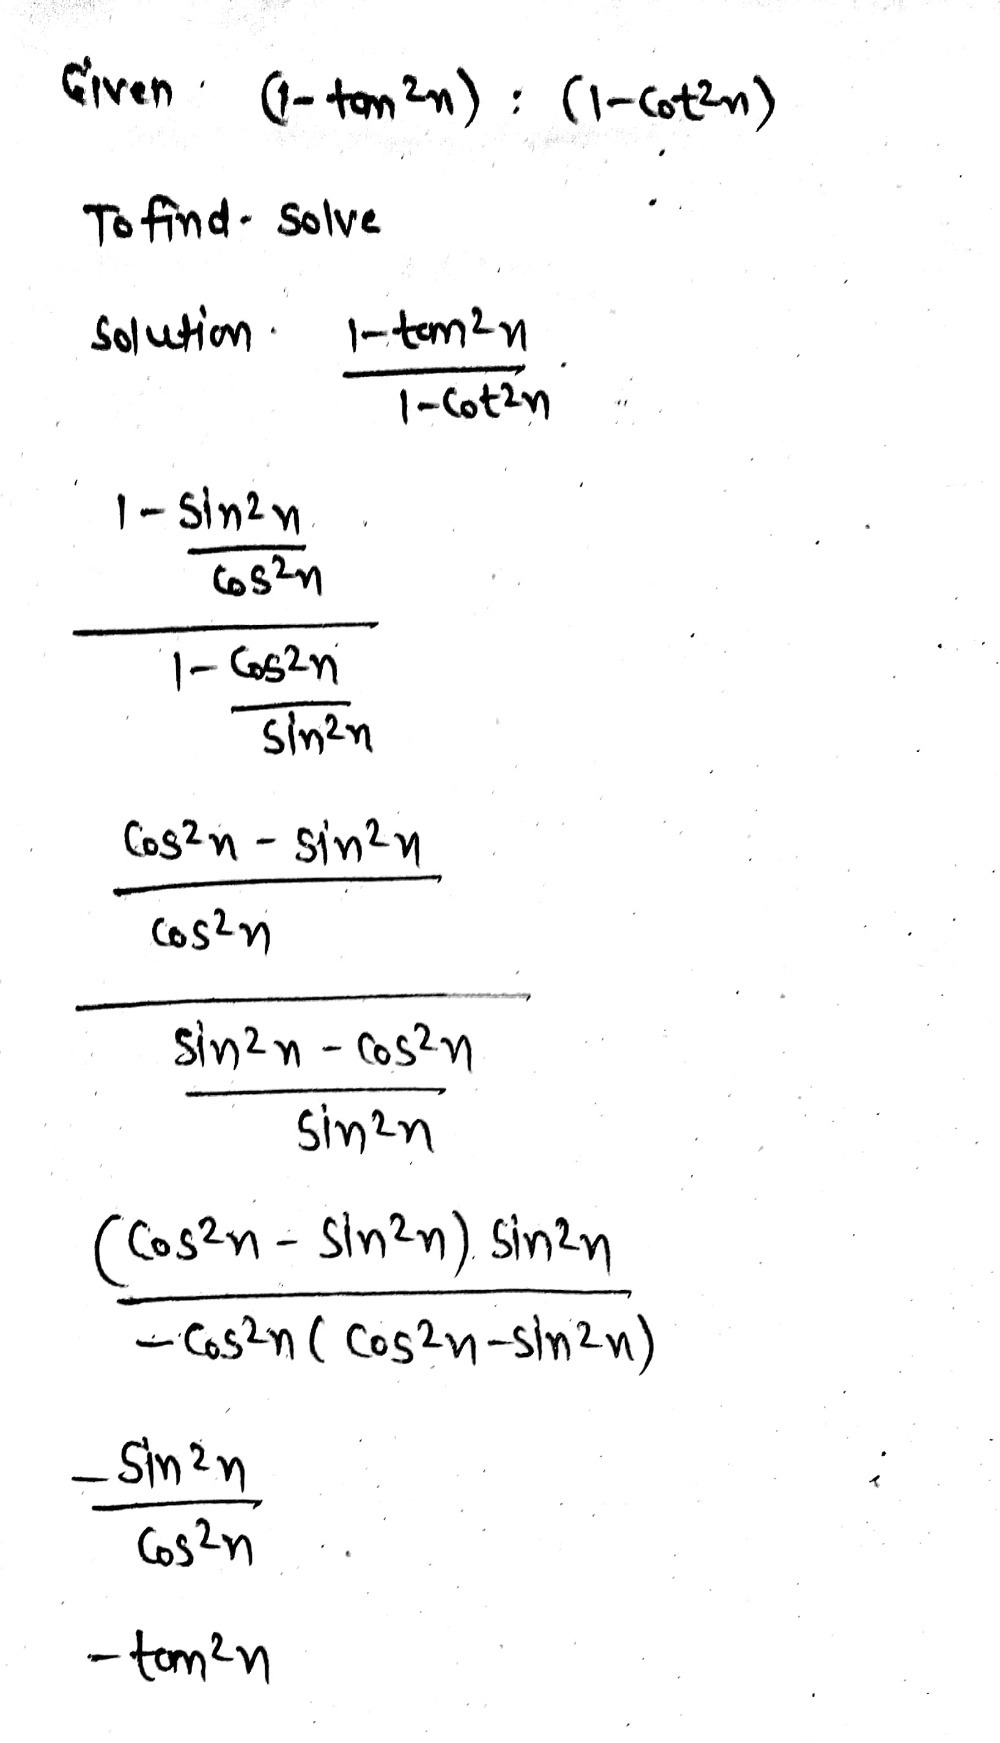 Given. (1-tan2n) : (1-cot2n)
To find - solve
Solution. 1-tan2n
1-cot2n
1-sin2n
cos2n
1-cos2n
sin2n
cos2n - sin2n
cos2n
sin2n - cos2n
sin2n
(cos2n - sin2n). sin2n
-cos2n (cos2n-sin2n)
-sin2n
cos2n
-tan2n